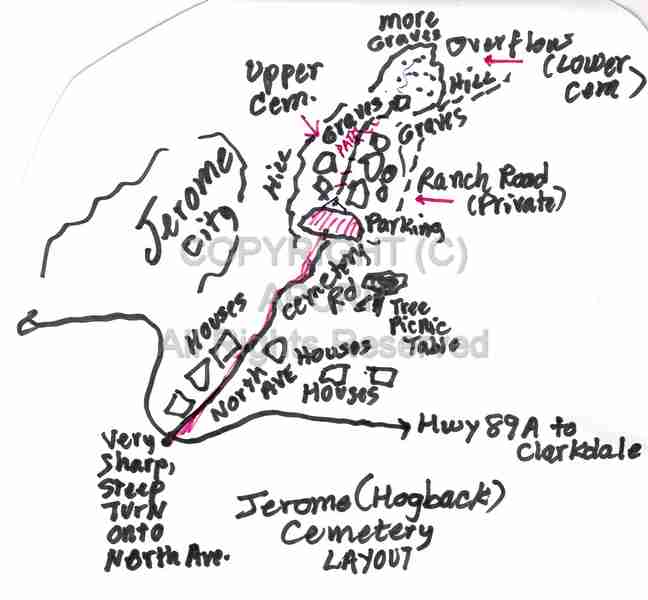 more
Graves
Overflow
(Lower
Cem)
Hill
Upper
Cem.
Graves
PATH
Graves
Hill
Ranch Road
(Private)
Jerome
City
Parking
COPYRIGHT (C)
All Rights Reserved
Cemetery
Rd
Tree
Picnic
Table
Houses
Houses
Houses
North
AVE
Hwy 89A to
Clarkdale
Very
Sharp,
Steep
TURN
onto
North Ave.
Jerome (Hogback)
Cemetery
LAYOUT